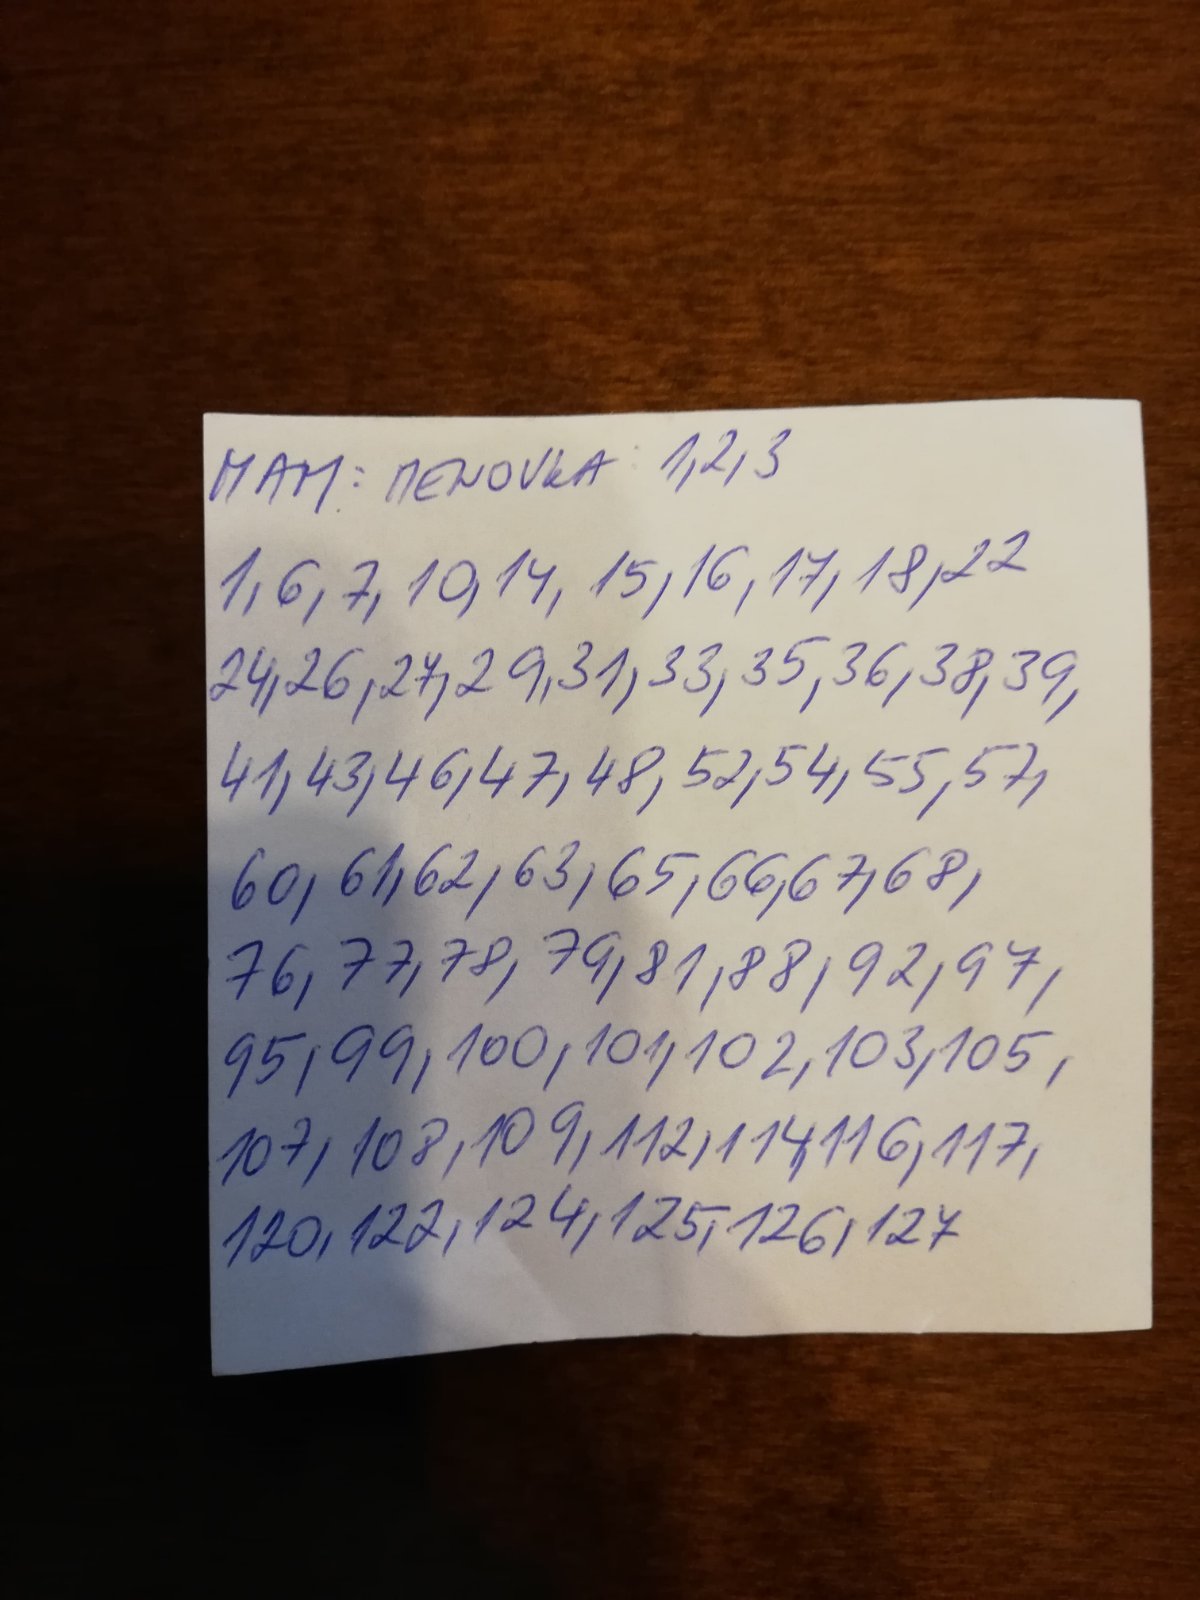 MAM: MENOVKA: 1,2,3
1, 6, 7, 10, 14, 15, 16, 17, 18, 22
24, 26, 27, 29, 31, 33, 35, 36, 38, 39,
41, 43, 46, 47, 48, 52, 54, 55, 57,
60, 61, 62, 63, 65, 66, 67, 68,
76, 77, 78, 79, 81, 88, 92, 97,
95, 99, 100, 101, 102, 103, 105,
107, 108, 109, 112, 114, 116, 117,
120, 122, 124, 125, 126, 127